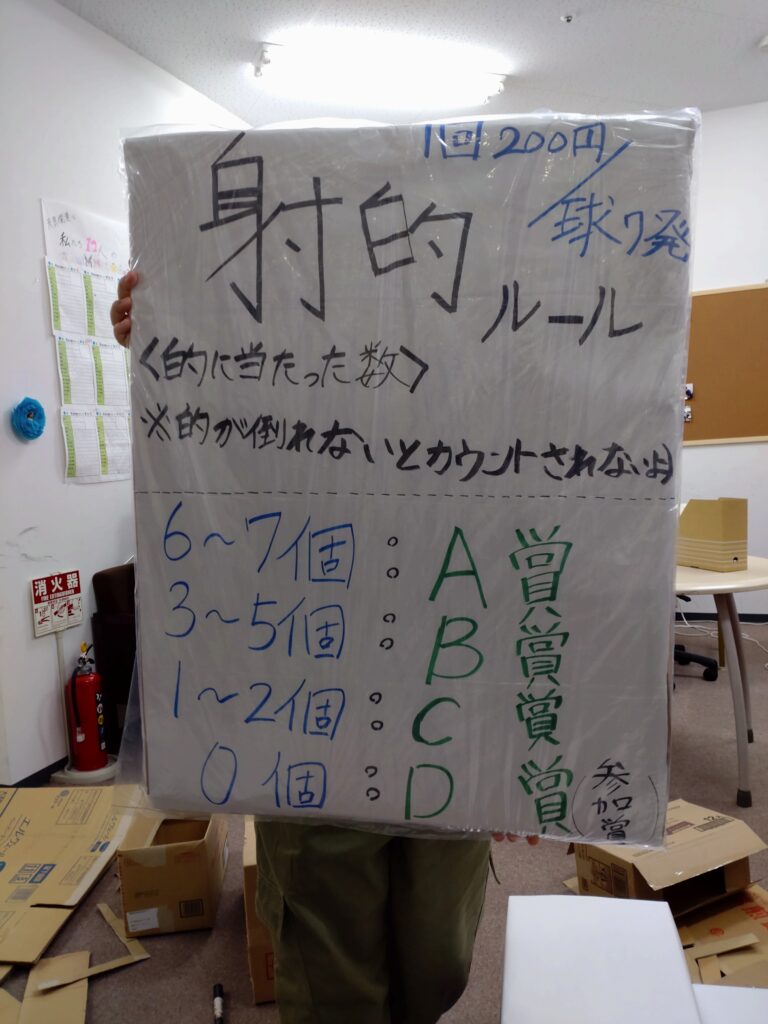 1回200円/
球7発
射的
ルール
<的に当たった数>
※的が倒れないとカウントされないよ
6~7個:A賞
3~5個:B賞
1~2個:C賞
0個:D賞(参加賞)
消火器
FIRE EXTINGUISHER
私たち17人の